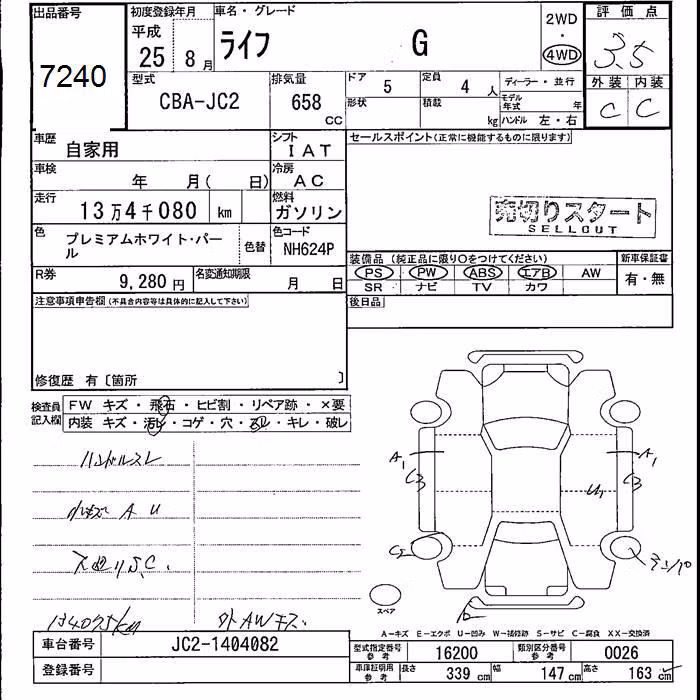 出品番号
7240
初度登録年月
平成
25 8月
車名・グレード
ライフ G
2WD
・
4WD
評価点
3.5
外装 内装
C C
型式
CBA-JC2
排気量
658
CC
ドア 5
定員 4 人
形状
積載 kg
ディーラー・並行
モデル年式 年
ハンドル 左・右
車歴
自家用
シフト
IAT
車検
年 月( 日)
冷房
AC
走行
13万4千080 km
燃料
ガソリン
色
プレミアムホワイト・パール
色替
色コード
NH624P
R券
9,280円
名変通知期限
月 日
セールスポイント(正常に機能するものに限ります)
売切りスタート
SELLOUT
装備品 (純正品に限り○をつけてください)
PS PW ABS エアB AW
SR ナビ TV カワ
新車保証書
有・無
後日品
注意事項申告欄(不具合内容等は具体的に記入して下さい)
修復歴 有〔箇所 〕
検査員
記入欄
FW キズ・飛石・ヒビ割・リペア跡・×要
内装 キズ・汚レ・コゲ・穴・スレ・キレ・破レ
ハンドルスレ
小キズ A U
下廻りS.C.
134075km
外AWキズ
A1
C3
A1
C3
U1
C2
スペア
A-キズ E-エクボ U-凹み W-補修跡 S-サビ C-腐食 XX-交換済
車台番号
JC2-1404082
登録番号
型式指定番号
参考
16200
類別区分番号
参考
0026
車庫証明用
参考
長さ 339 cm
幅 147 cm
高さ 163 cm